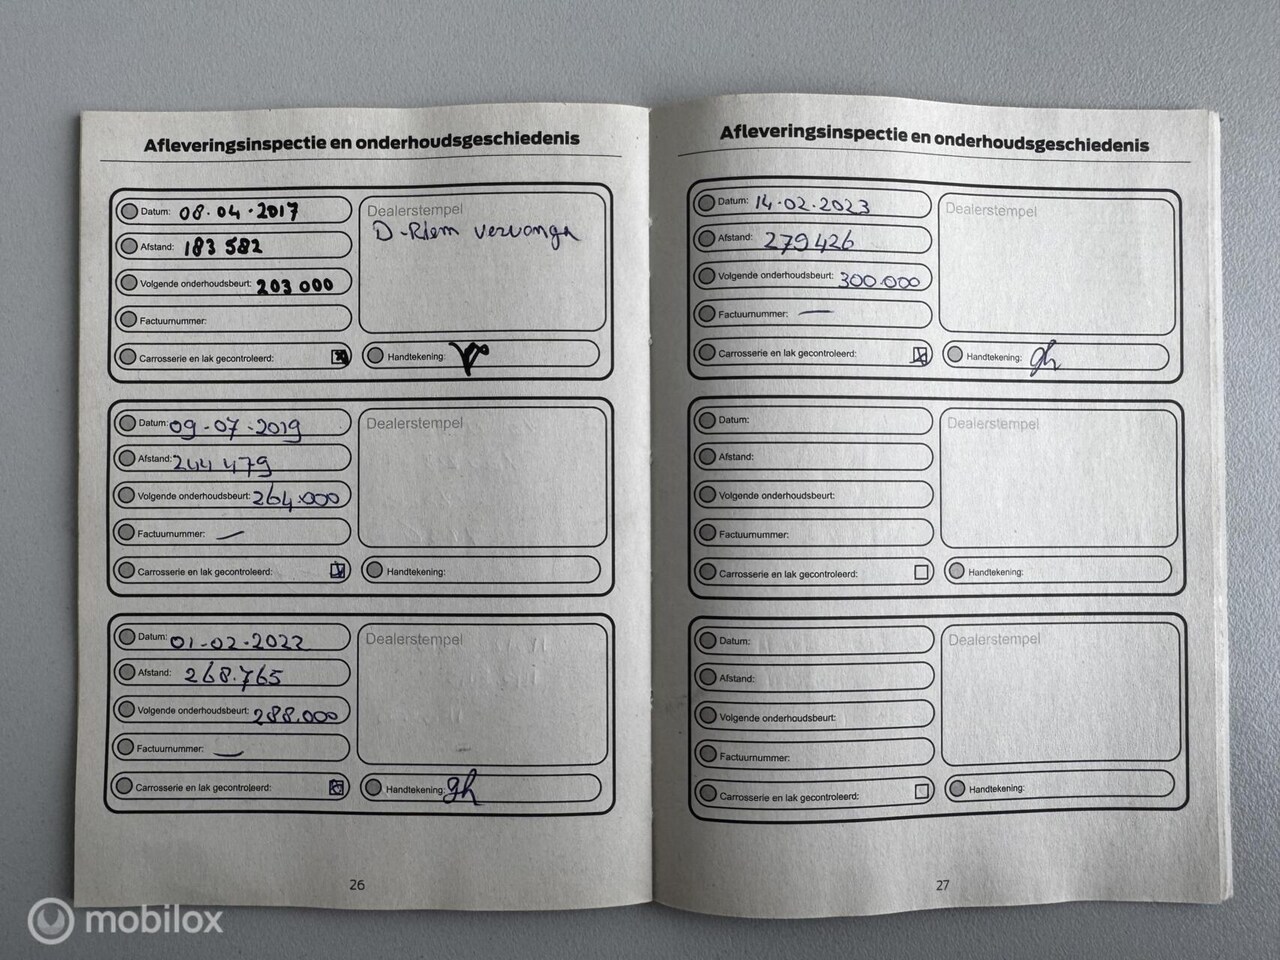 Afleveringsinspectie en onderhoudsgeschiedenis
Datum: 08.04.2017
Afstand: 183 582
Volgende onderhoudsbeurt: 203 000
Factuurnummer:
Carrosserie en lak gecontroleerd:
Dealerstempel
D-Riem vervangen
Handtekening:
Datum: 09-07-2019
Afstand: 244 479
Volgende onderhoudsbeurt: 264.000
Factuurnummer: —
Carrosserie en lak gecontroleerd:
Dealerstempel
Handtekening:
Datum: 01-02-2022
Afstand: 268.765
Volgende onderhoudsbeurt: 288.000
Factuurnummer: —
Carrosserie en lak gecontroleerd:
Dealerstempel
Handtekening: gh
26
Afleveringsinspectie en onderhoudsgeschiedenis
Datum: 14.02.2023
Afstand: 279426
Volgende onderhoudsbeurt: 300.000
Factuurnummer: —
Carrosserie en lak gecontroleerd:
Dealerstempel
Handtekening: gh
Datum:
Afstand:
Volgende onderhoudsbeurt:
Factuurnummer:
Carrosserie en lak gecontroleerd:
Dealerstempel
Handtekening:
Datum:
Afstand:
Volgende onderhoudsbeurt:
Factuurnummer:
Carrosserie en lak gecontroleerd:
Dealerstempel
Handtekening:
27
mobilox